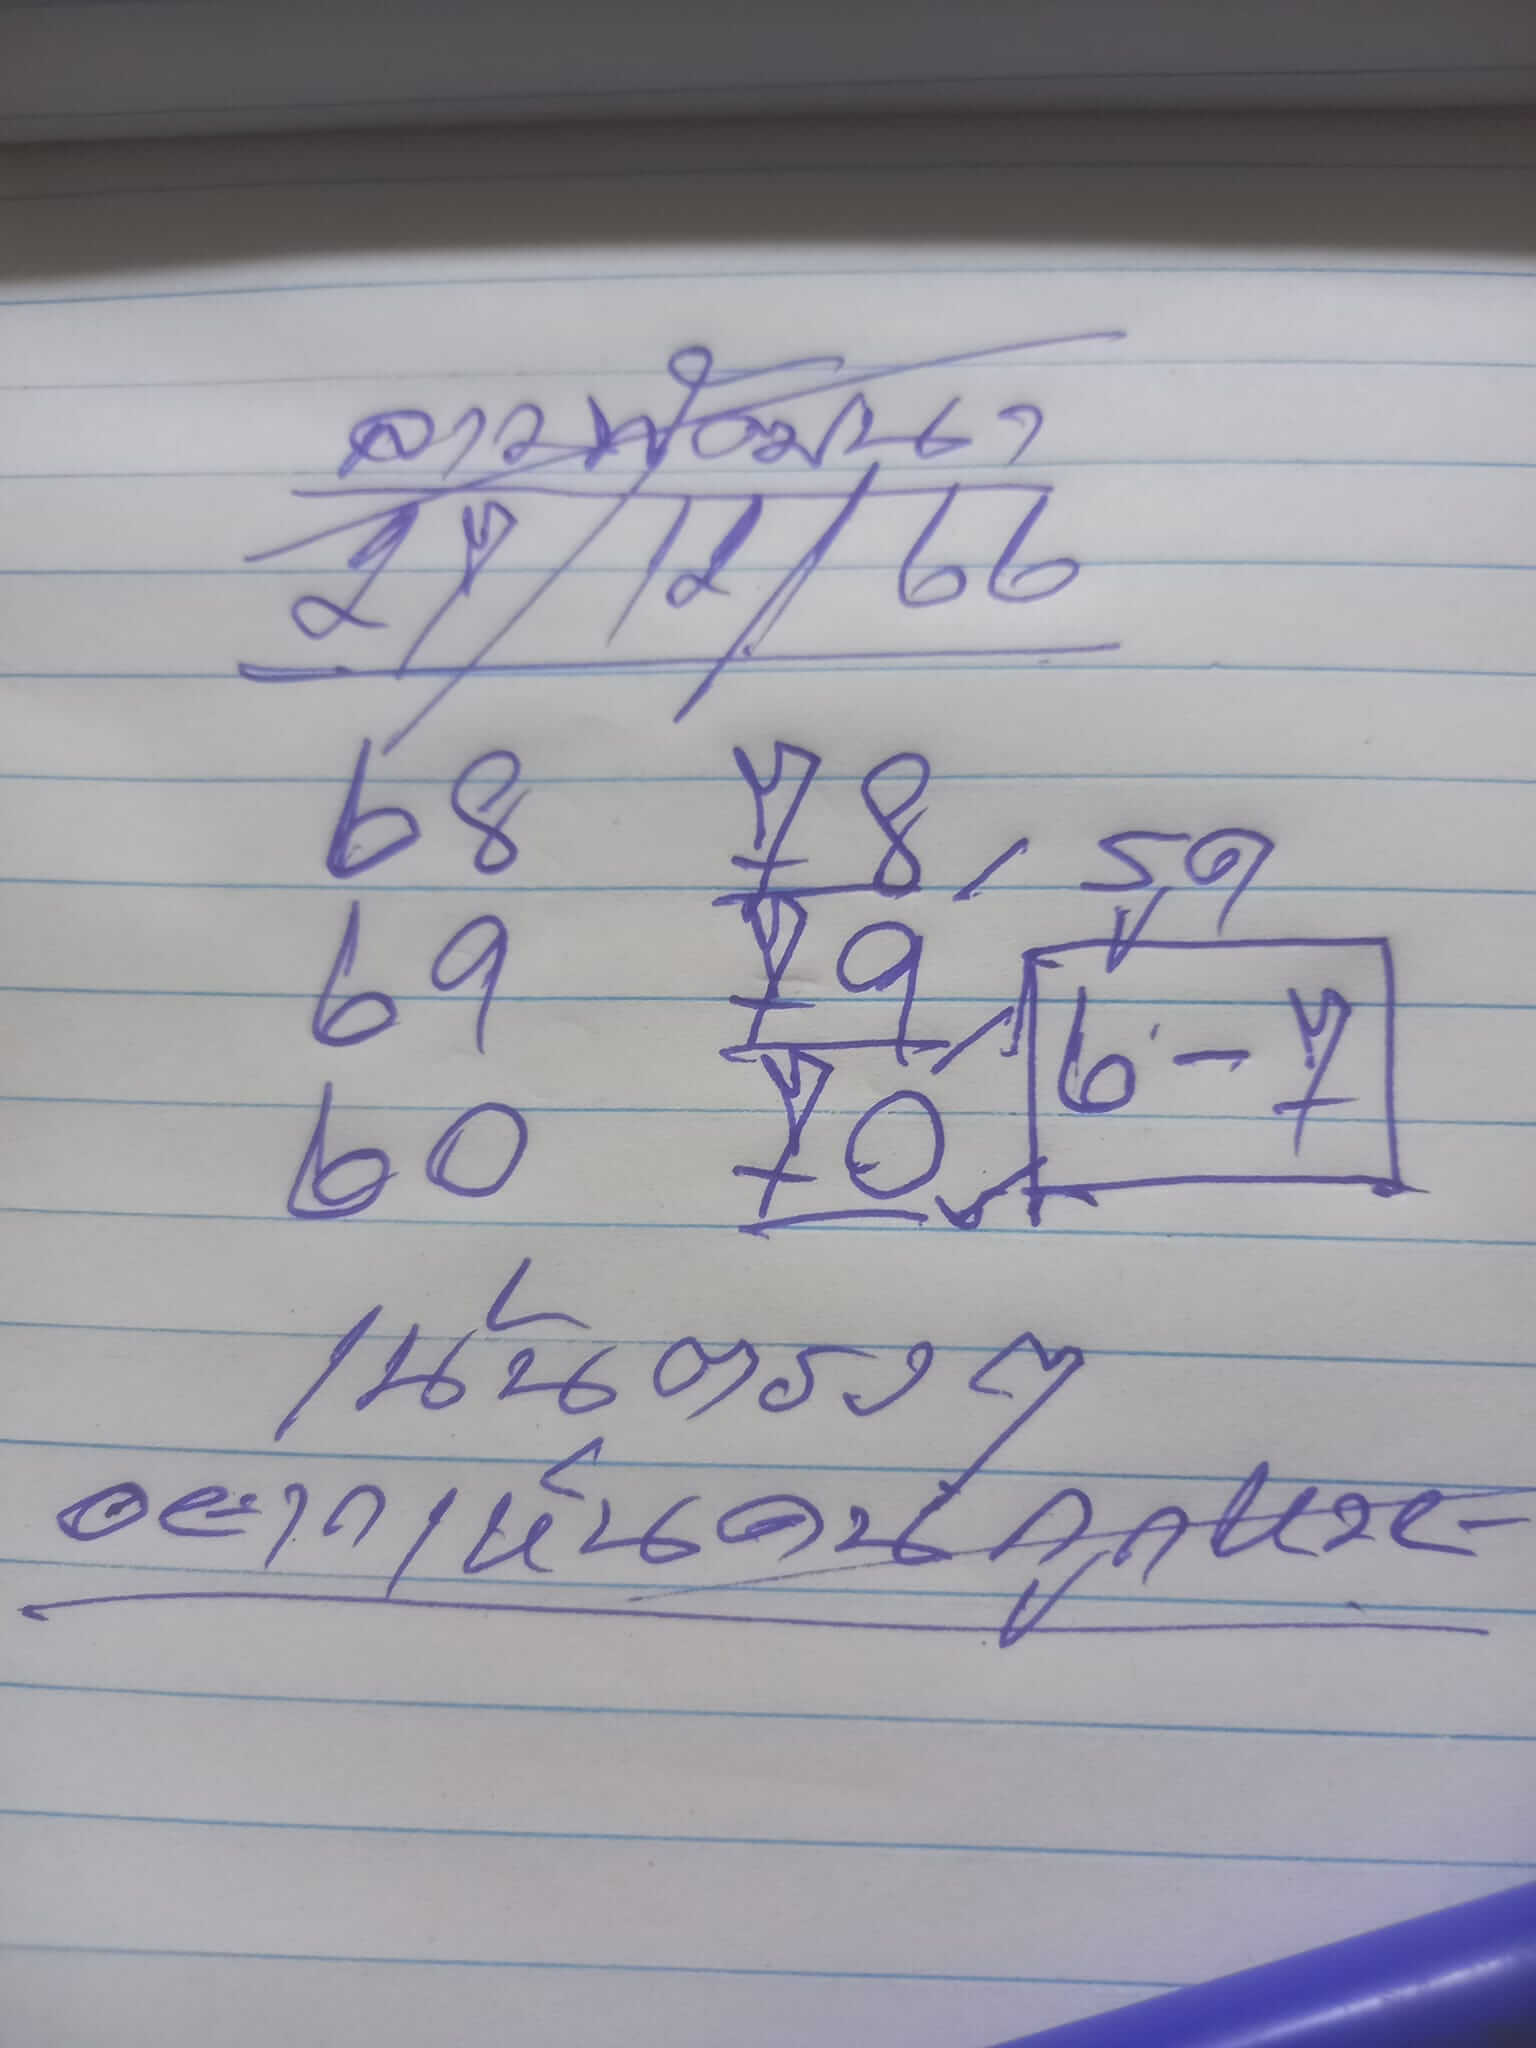 ลาวพัฒนา
27/12/66
68 78, รูด
69 79, 6-7
60 70
เน้นตรงๆ
อยากเห็นคนถูกหวย